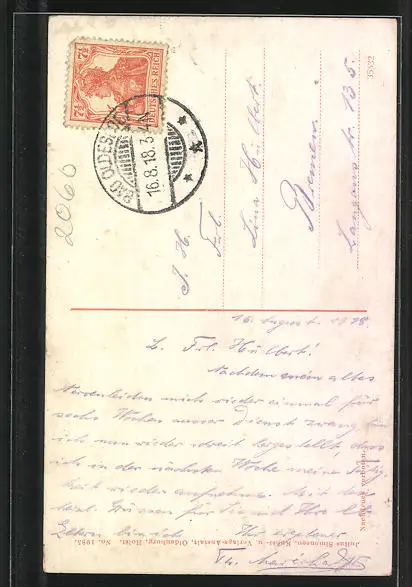 7½ 7½
DEUTSCHES REICH
BAD OLDESLOE
16.8.18.3-4N
2060
35522
I. H.
Frl.
Lina Hülbert
Bremen.
Langens tr. 135.
16. August. 1918.
L. Frl. Hülbert!
Nachdem mein altes
Nervenleiden mich wieder einmal für
sechs Wochen ausser Dienst zwang, bin
ich nun wieder soweit hergestellt, dass
ich in der nächsten Woche meine Tätig-
keit wieder aufnehme. Mit
für Sie und Ihre lb.
Eltern bin ich Ihr ergebener
Julius Simonsen, Kunst- u. Verlags-Anstalt, Oldenburg, Holst. No. 1985.
Nachdruck verboten.